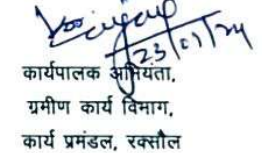 23/07/24
कार्यपालक अभियंता,
ग्रमीण कार्य विभाग,
कार्य प्रमंडल, रक्सौल